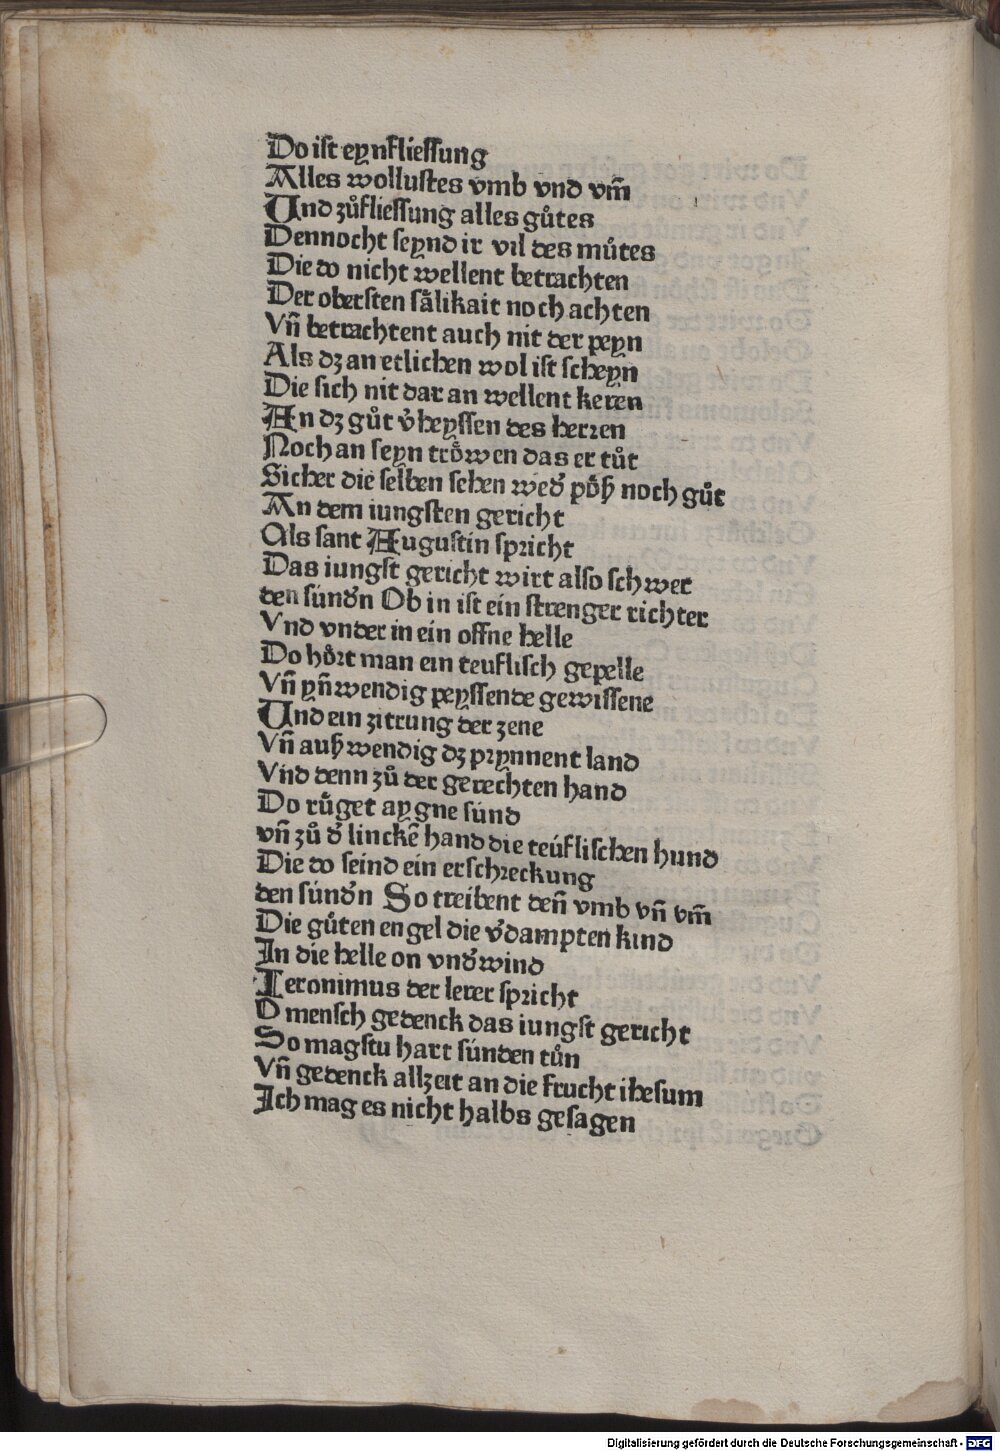 Do ist eynfliessung
Alles wollustes vmb vnd vm̄
Und zůfliessung alles gůtes
Dennocht seynd ir vil des můtes
Die do nicht wellent betrachten
Der obersten sålikait noch achten
Vn̄ betrachtent auch nit der peyn
Als dz an etlichen wol ist scheyn
Die sich nit dar an wellent keren
An dz gůt v̓heyssen des herren
Noch an seyn trőwen das er tůt
Sicher die selben sehen wed̓ pőß noch gůt
An dem iungsten gericht
Als sant Augustin spricht
Das iungst gericht wirt also schwer
den súnd̓n Ob in ist ein strenger richter
Vnd vnder in ein offne helle
Do hőrt man ein teuflisch gepelle
Vn̄ yn̄wendig peyssende gewissene
Und ein zitrung der zene
Vn̄ außwendig dz prynnent land
Vnd denn zů der gerechten hand
Do rűget aygne súnd
vn̄ zů d̓ linckē hand die teúflischen hund
Die do seind ein erschreckung
den súnd̓n So treibent den̄ vmb vn̄ vm̄
Die gůten engel die v̓dampten kind
In die helle on vnd̓wind
Ieronimus der lerer spricht
O mensch gedenck das iungst gericht
So magstu hart súnden tůn
Vn̄ gedenck allzeit an die frucht ihesum
Ich mag es nicht halbs gesagen
Digitalisierung gefördert durch die Deutsche Forschungsgemeinschaft - DFG